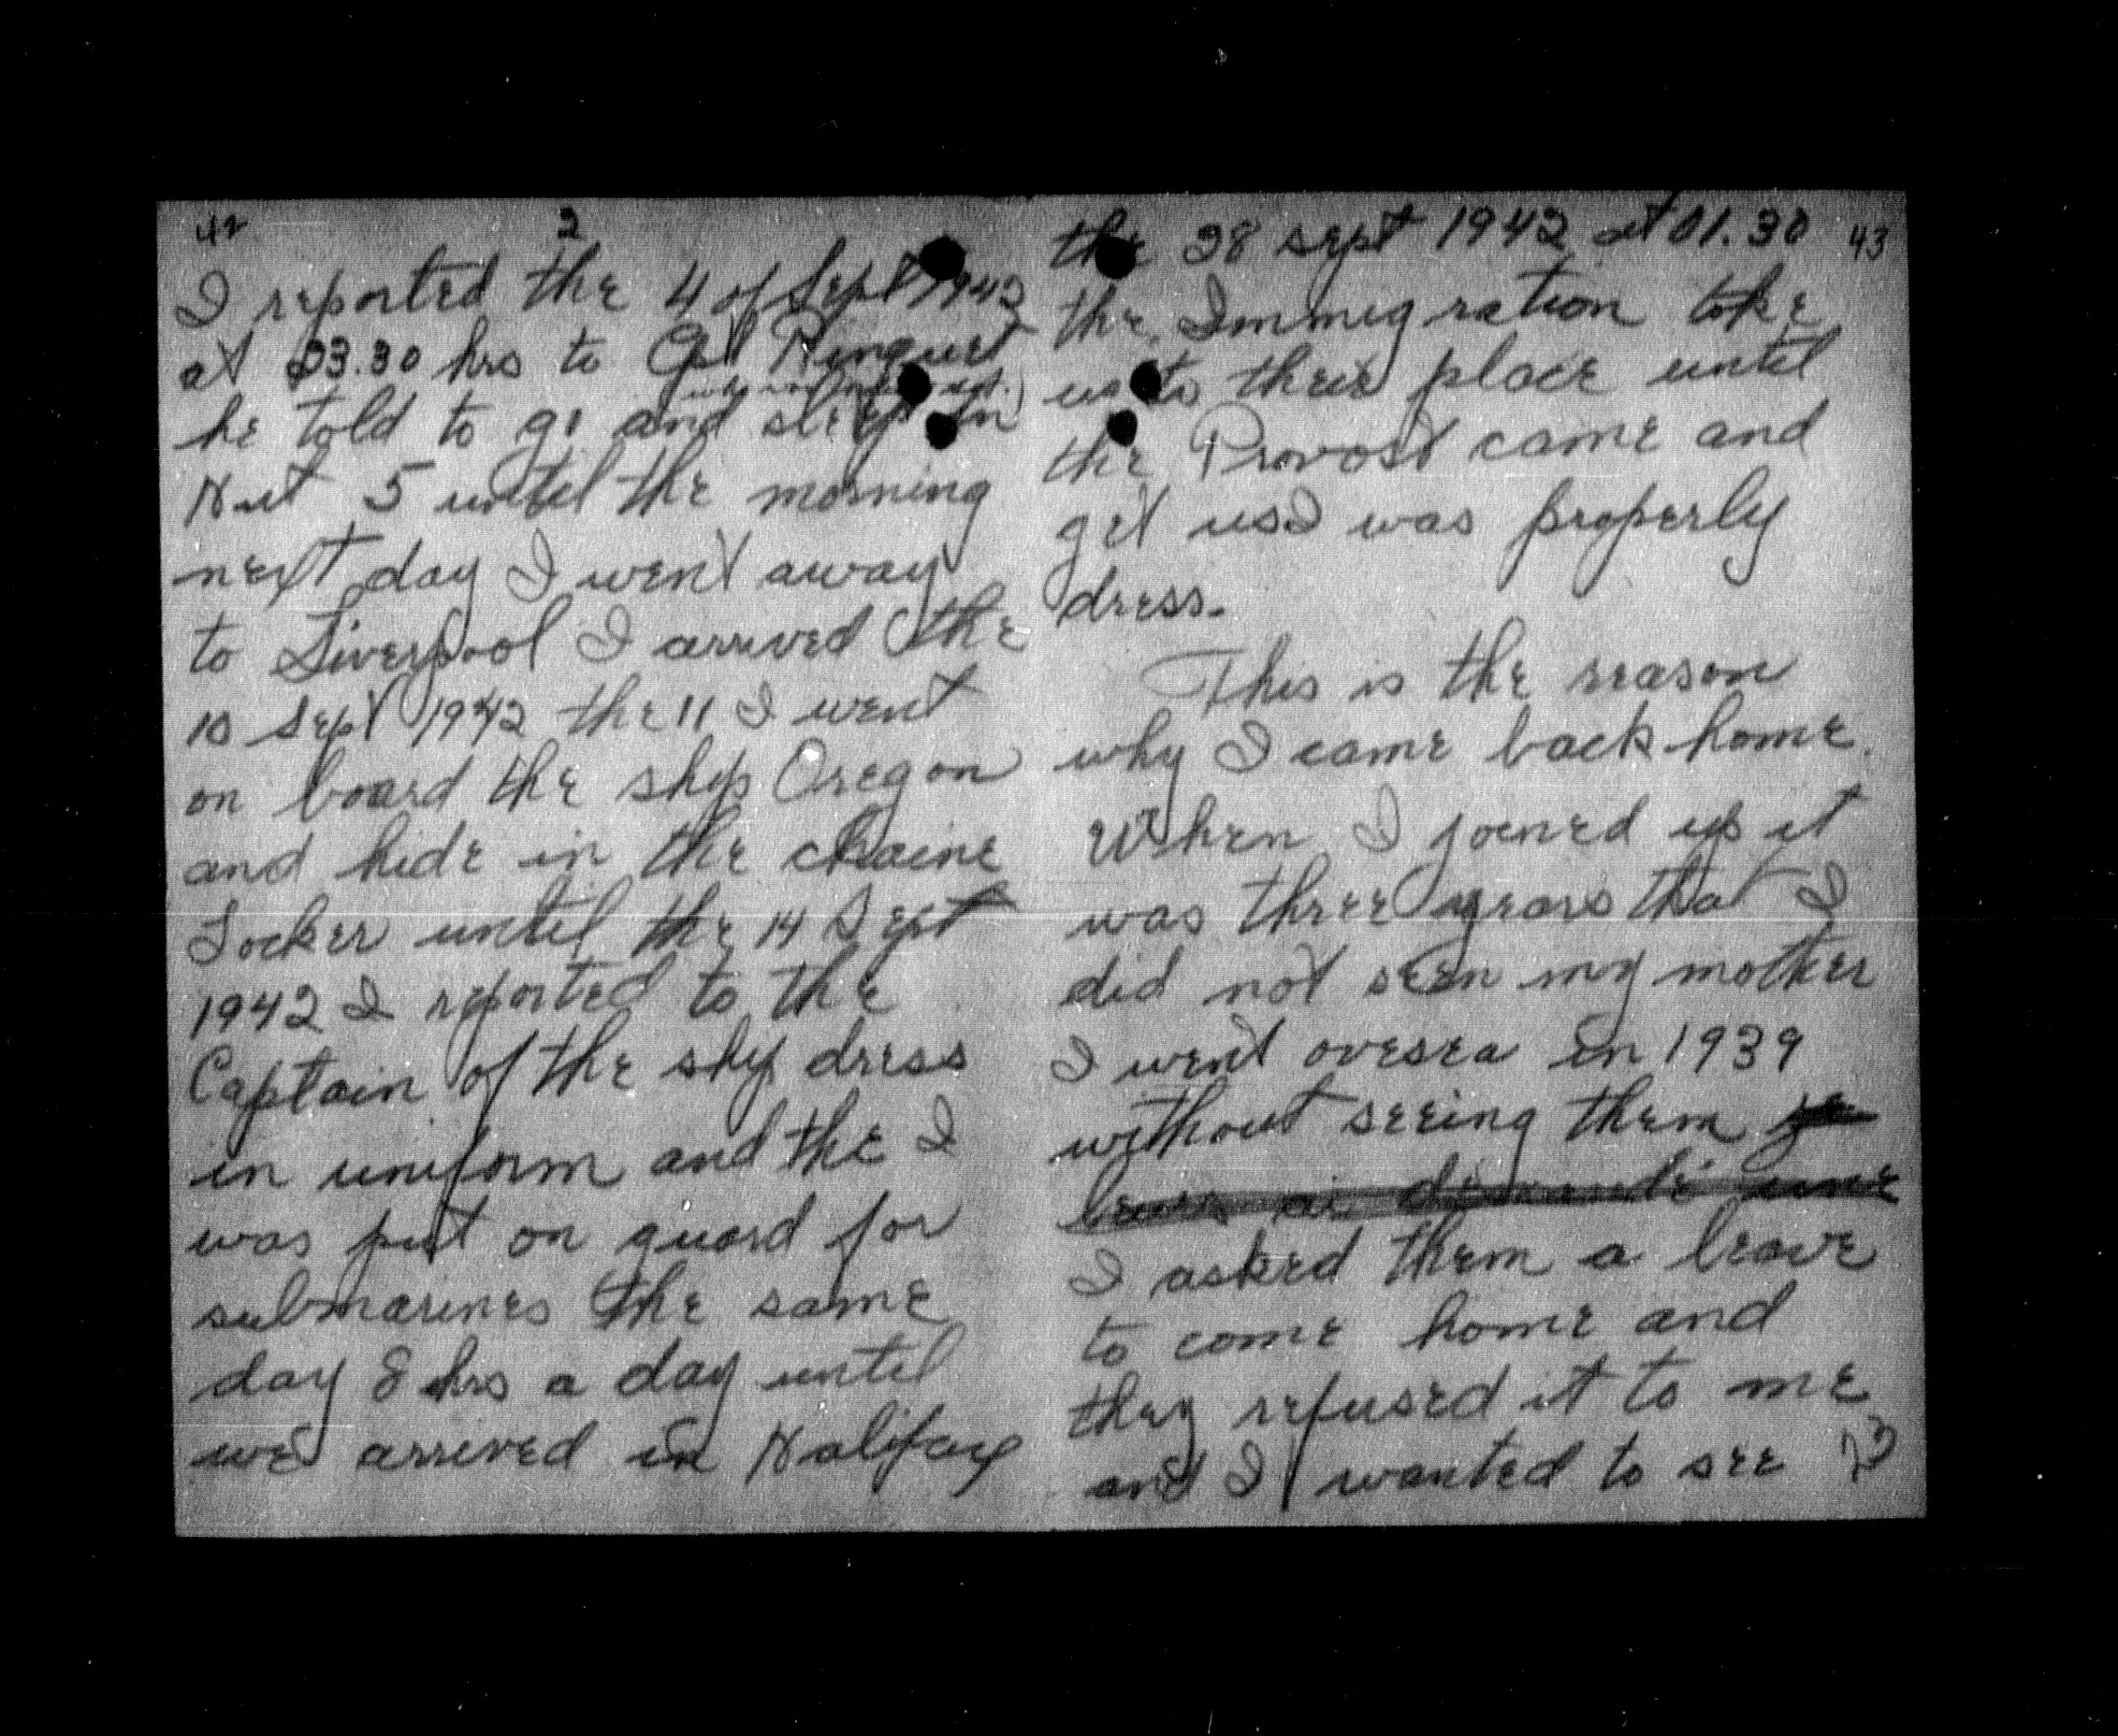 42
2
I reported the 4 of Sept 1942
at 23.30 hrs to Cpl Ringuet
he told to go and sleep in
Hut 5 until the morning
next day I went away
to Liverpool I arrived the
10 Sept 1942 the 11 I went
on board the ship Oregon
and hide in the chaine
Locker until the 14 Sept
1942 I reported to the
Captain of the ship dress
in uniform and the I
was put on guard for
submarines the same
day 8 hrs a day until
we arrived in Halifax
43
the 28 sept 1942 at 01.30
the Immigration toke
us to their place until
the Provost came and
get us I was properly
dress.
This is the reason
why I came back home.
When I joined up it
was three years that I
did not seen my mother
I went oversea in 1939
without seeing them je
leurs ai demandé une
I asked them a leave
to come home and
they refused it to me
and I wanted to see